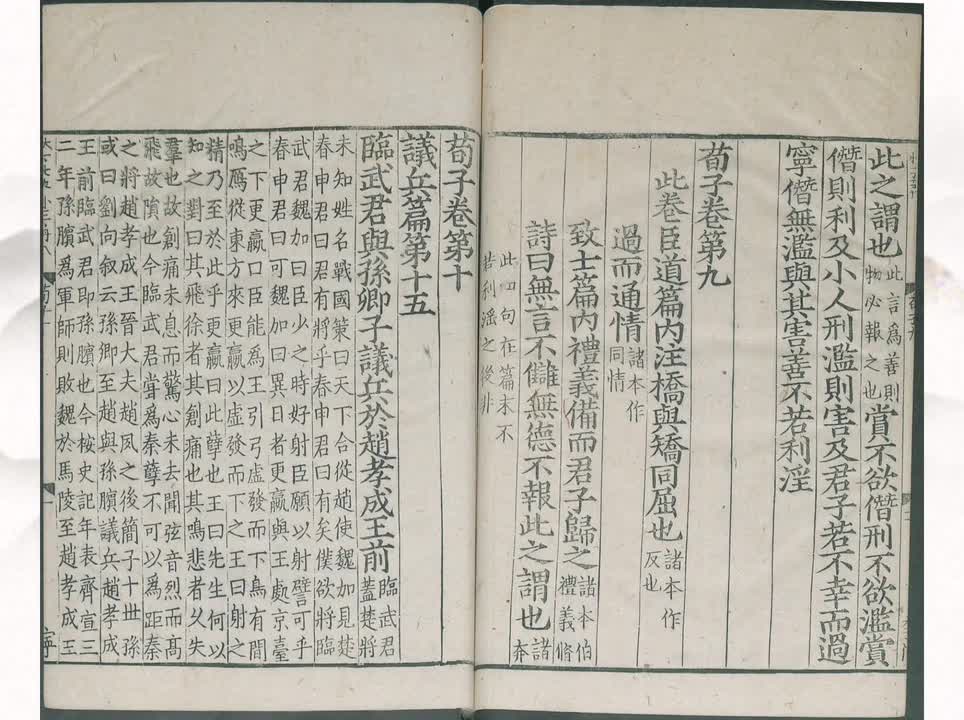 此之謂也此言爲善則物必報之也賞不欲僭刑不欲濫賞
僭則利及小人刑濫則害及君子若不幸而過
寧僭無濫與其害善不若利淫
荀子卷第九
此卷臣道篇内注橋與矯同屈也諸本作反也
過而通情諸本作同情
致士篇内禮義備而君子歸之諸本伯禮義脩
詩曰無言不讎無德不報此之謂也諸本
此四句在篇末不若利淫之後非
荀子卷第十
議兵篇第十五
臨武君與孫卿子議兵於趙孝成王前臨武君蓋楚將
未知姓名戰國策曰天下合從趙使魏加見楚
春申君曰君有將乎春申君曰有矣僕欲將臨
武君魏加曰臣少之時好射臣願以射譬可乎
春申君曰可魏加曰異日者更羸與王處京臺
之下更羸曰臣能爲王引弓虛發而下鳥有間
鳴鴈從東方來更羸以虛發而下之王曰射之
精乃至於此乎更羸曰此孽也王曰先生何以
知之對曰其飛徐者其創痛也其鳴悲者乆失
羣也故創痛未息而驚心未去聞弦音烈而髙
飛故隕也今臨武君嘗爲秦孽不可以爲距秦
之將趙孝成王晉大夫趙夙之後簡子十丗孫
或曰劉向敘云孫卿至趙與孫臏議兵趙孝成
王前臨武君即孫臏也今桉史記年表齊宣王
二年孫臏爲軍師則敗魏於馬陵至趙孝成王